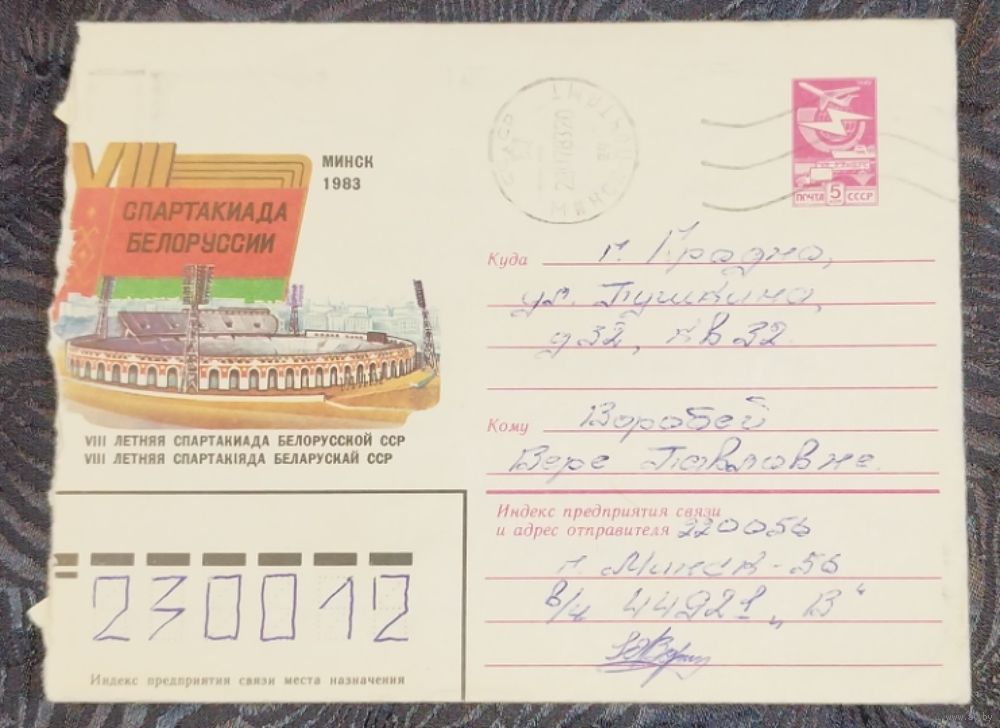 VIII
СПАРТАКИАДА
БЕЛОРУССИИ
МИНСК
1983
VIII ЛЕТНЯЯ СПАРТАКИАДА БЕЛОРУССКОЙ ССР
VIII ЛЕТНЯЯ СПАРТАКІЯДА БЕЛАРУСКАЙ ССР
ПОЧТА 5 СССР
Куда г. Гродно,
ул. Пушкина,
д 32, кв 32.
Кому Воробей
Вере Павловне.
Индекс предприятия связи
и адрес отправителя 220056
г. Минск-56
в/ч 44921 „В“
230012
Индекс предприятия связи места назначения